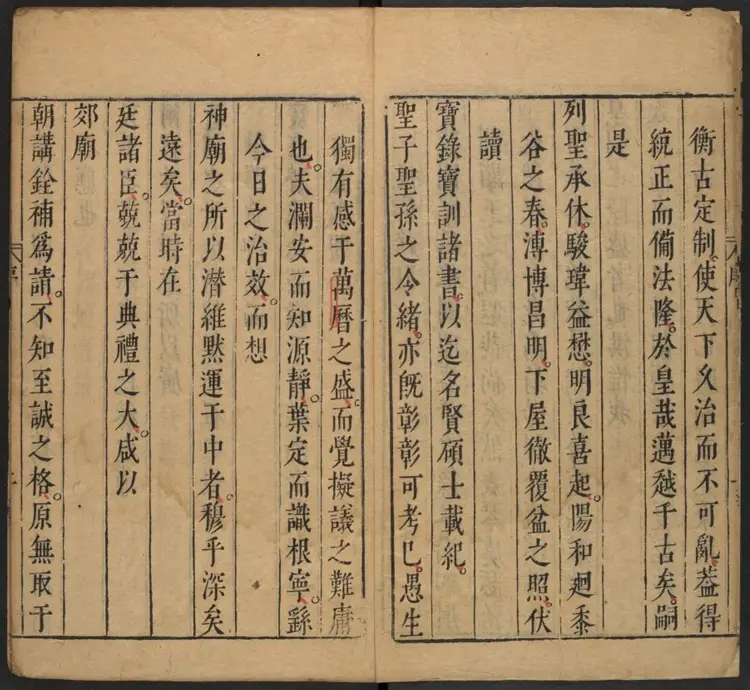 衡古定制。使天下乂治而不可亂。葢得
統正而備法隆。於皇哉邁越千古矣。嗣
是
列聖承休。駿瑋益懋。明良喜起。陽和廻黍
谷之春。溥博昌明。下屋徹覆盆之照。伏
讀
寶錄寶訓諸書。以迄名賢碩士載紀。
聖子聖孫之令緒。亦既彰彰可考已。愚生
獨有感于萬曆之盛。而覺擬議之難庸
也。夫瀾安而知源靜。葉定而識根寧。繇
今日之治效。而想
神廟之所以潛維默運于中者。穆乎深矣
遠矣。當時在
廷諸臣。兢兢于典禮之大。咸以
郊廟
朝講銓補爲請。不知至誠之格。原無取于
序